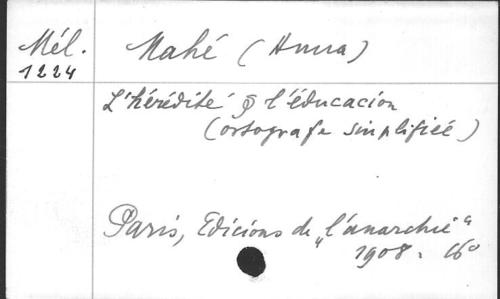 Mél.
1224
Mahé (Anna)
L'hérédité & l'éducacion
(ortografe simplifiée)
Paris, Edicions de „l'anarchie"
1908. 16°